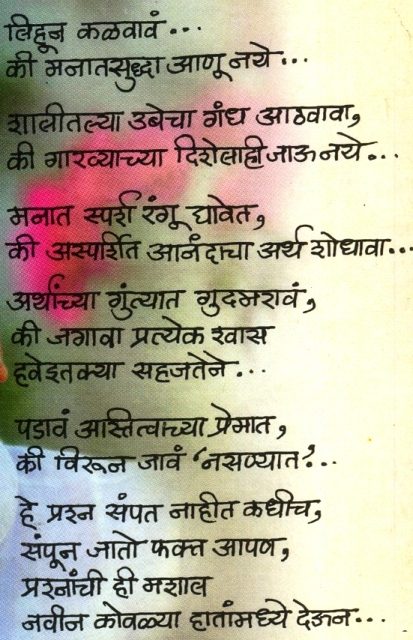 लिहून कळवावं...
की मनातसुद्धा आणू नये...
शालीतल्या उबेचा गंध आठवावा,
की गारव्याच्या दिशेलाही जाऊ नये...
मनात स्पर्श रंगू द्यावेत,
की अस्पर्शित आनंदाचा अर्थ शोधावा...
अर्थांच्या गुंत्यात गुदमरावं,
की जगावा प्रत्येक श्वास
हवेइतक्या सहजतेने...
पडावं अस्तित्वाच्या प्रेमात,
की विरून जावं ‘नसण्यात’?..
हे प्रश्न संपत नाहीत कधीच,
संपून जातो फक्त आपण,
प्रश्नांची ही मशाल
नवीन कोवळ्या हातांमध्ये देऊन...